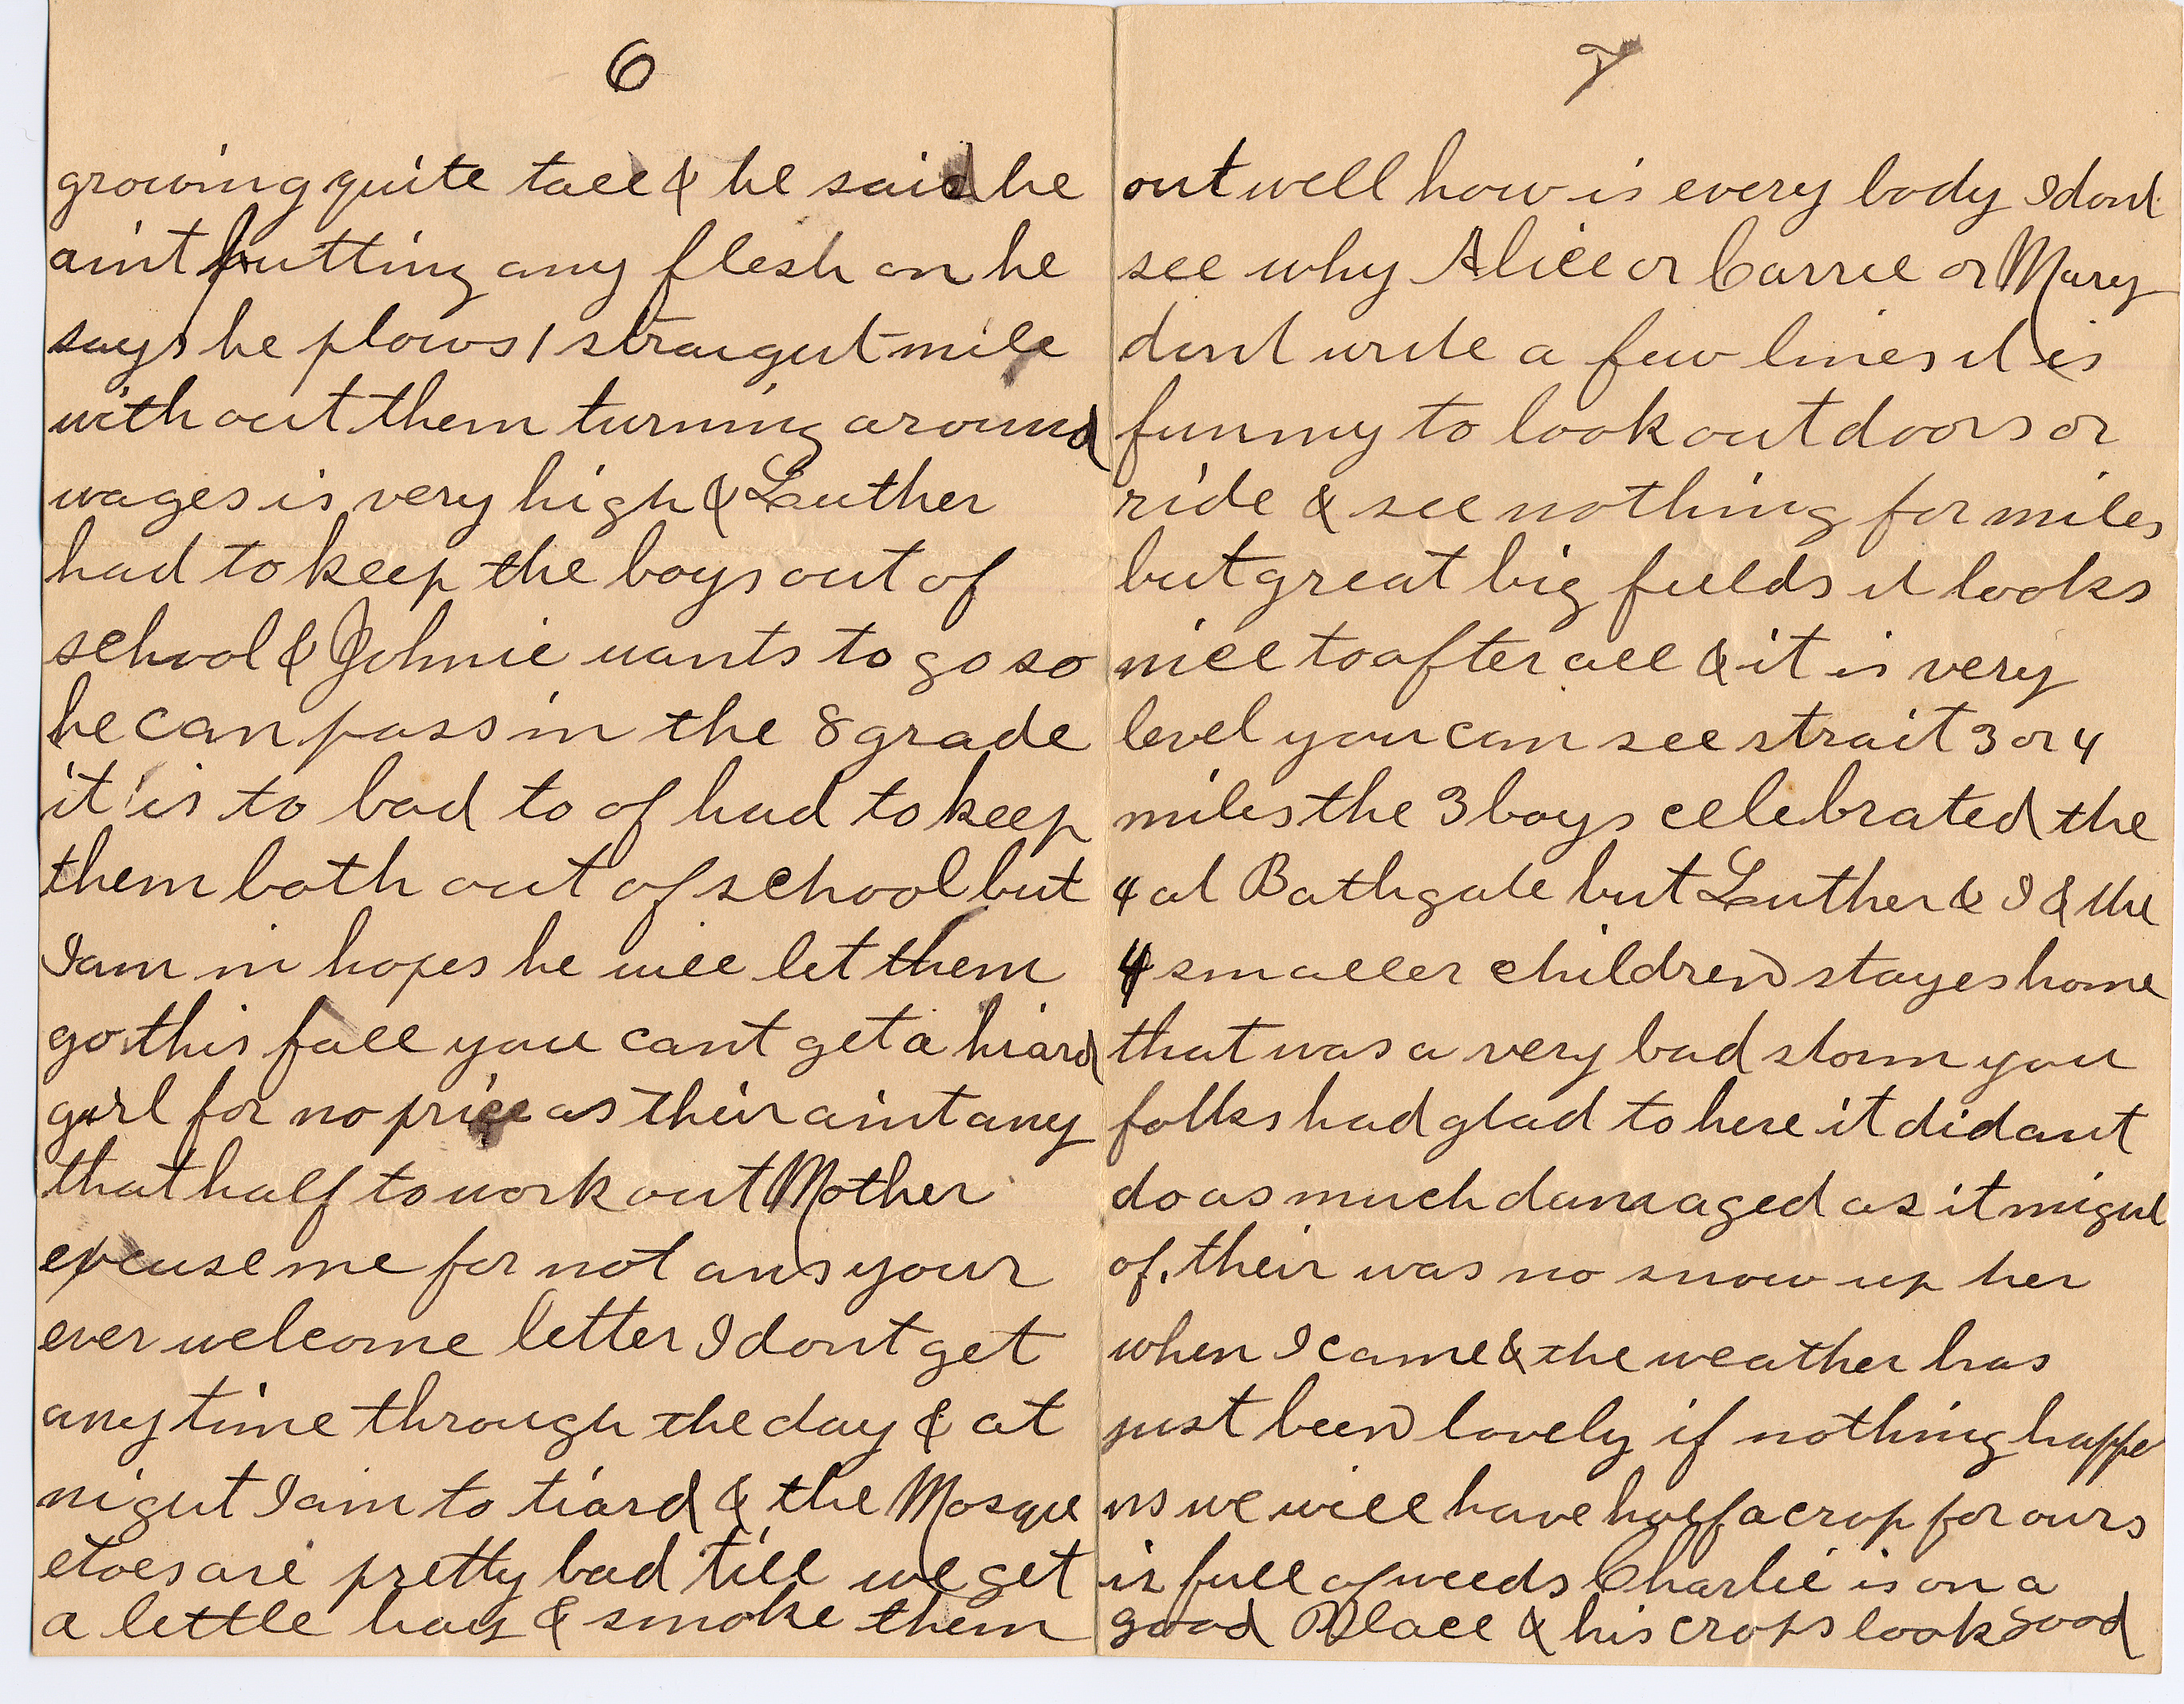 6
growing quite tall & he said he
aint putting any flesh on he
says he plows 1 straigut mile
with out them turning around
wages is very high & Luther
had to keep the boys out of
school & Johnie wants to go so
he can pass in the 8 grade
it is to bad to of had to keep
them both out of school but
I am in hopes he will let them
go this fall you cant get a hiard
girl for no price as their aint any
that half to work out Mother
excuse me for not ans your
ever welcome letter I dont get
any time through the day & at
nigut I am to tiard & the Mosque
etoes are pretty bad till we get
a little hay & smoke them
7
out well how is every body I dont
see why Alice or Carrie or Mary
dont write a few lines it is
funny to look out doors or
ride & see nothing for miles
but great big fields it looks
nice to after all & it is very
level you can see strait 3 or 4
miles the 3 boys celebrated the
4 at Bathgate but Luther & I & the
4 smaller children stayes home
that was a very bad storm you
folks had glad to here it didant
do as much damaged as it migut
of. their was no snow up her
when I came & the weather has
just been lovely if nothing happe
ns we will have half a crop for ours
is full of weeds Charlie is on a
good Place & his crops look good